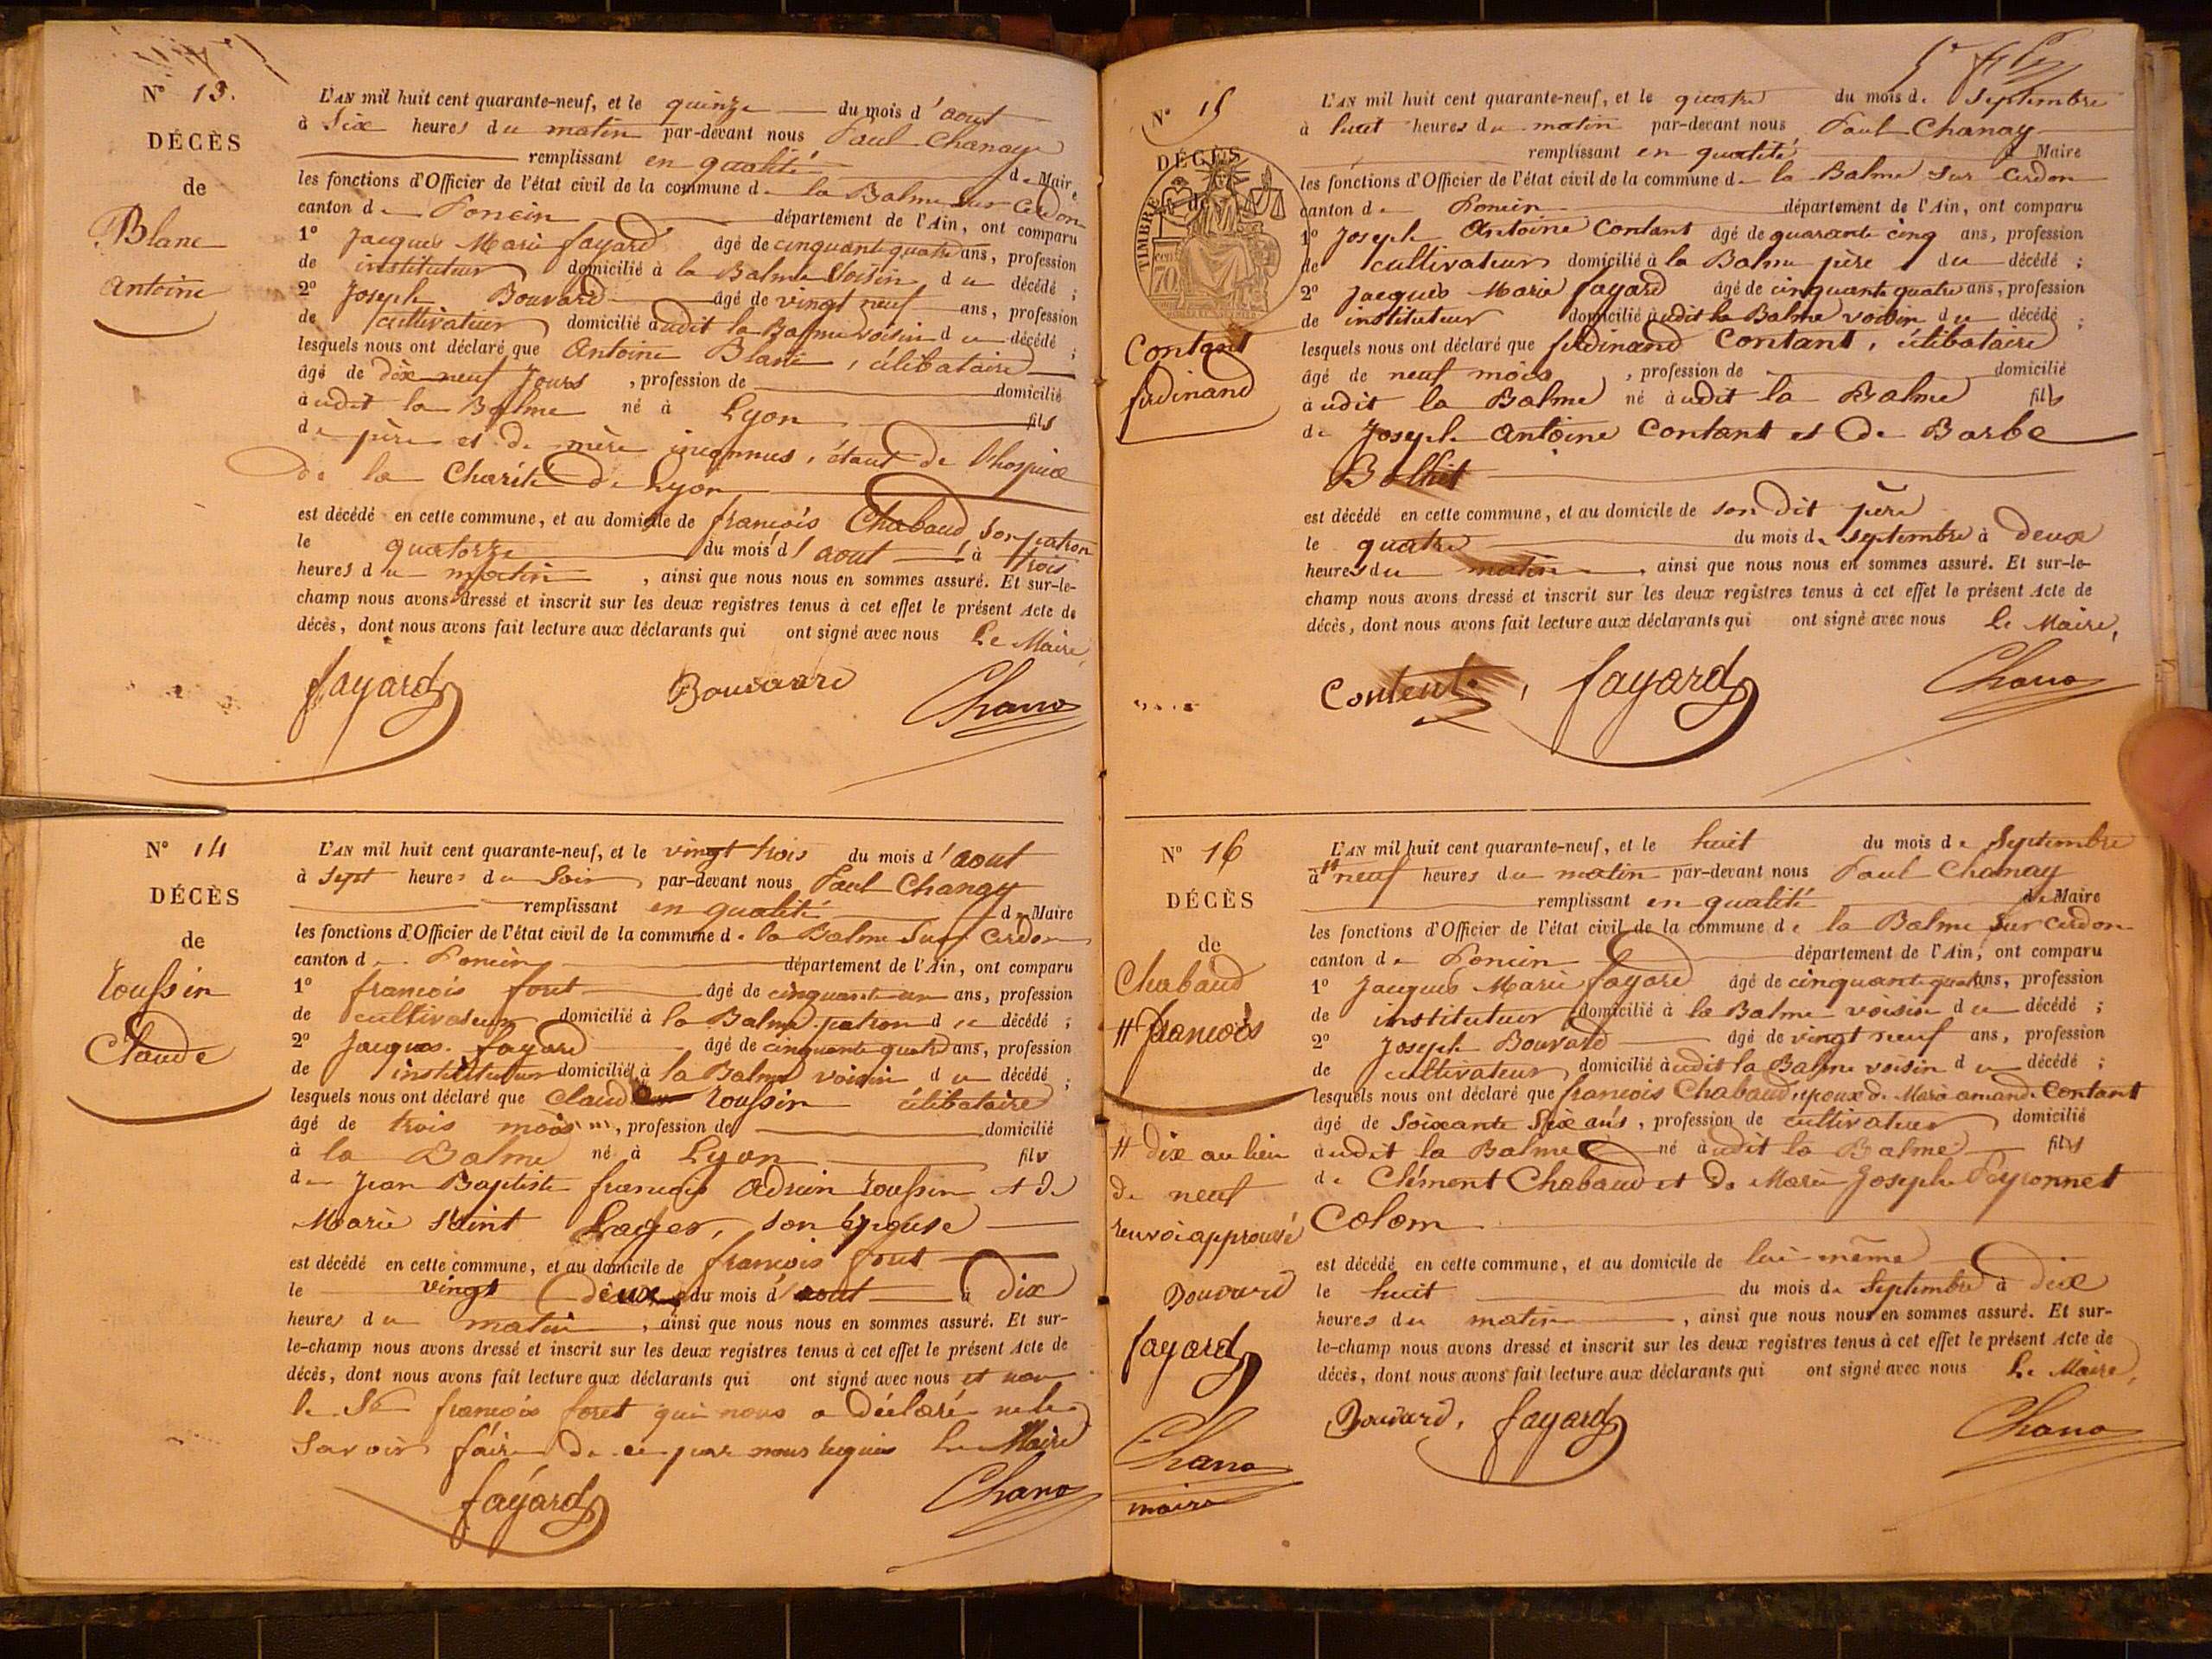 N° 13.
DÉCÈS
de
Blanc
Antoine
L'AN mil huit cent quarante-neuf, et le quinze du mois d'aout
à Six heures du matin par-devant nous Paul Chanay
remplissant en qualité de Maire
les fonctions d'Officier de l'état civil de la commune de la Balme sur Cerdon
canton de Poncin département de l'Ain, ont comparu
1° Jacques Marie fayard âgé de cinquante quatre ans, profession
de instituteur domicilié à la Balme Voisin du décédé ;
2° Joseph Bouvard âgé de vingt neuf ans, profession
de cultivateur domicilié audit la Balme voisin du décédé ;
lesquels nous ont déclaré que Antoine Blanc, célibataire
âgé de dix neuf Jours, profession de domicilié
audit la Balme né à Lyon fils
de père et de mère inconnus, étant de l'hospice
de la Charité de Lyon
est décédé en cette commune, et au domicile de françois Chabaud, Son patron
le quatorze du mois d'aout à trois
heures du matin, ainsi que nous nous en sommes assuré. Et sur-le-
champ nous avons dressé et inscrit sur les deux registres tenus à cet effet le présent Acte de
décès, dont nous avons fait lecture aux déclarants qui ont signé avec nous Le Maire,
fayard Bouvard Chana
N° 14
DÉCÈS
de
Toussin
Claude
L'AN mil huit cent quarante-neuf, et le vingt trois du mois d'aout
à Sept heures du Soir par-devant nous Paul Chanay
remplissant en qualité de Maire
les fonctions d'Officier de l'état civil de la commune de la Balme Sur Cerdon
canton de Poncin département de l'Ain, ont comparu
1° françois foret âgé de cinquante un ans, profession
de cultivateur domicilié à la Balme patron du décédé ;
2° Jacques fayard âgé de cinquante quatre ans, profession
de instituteur domicilié à la Balme voisin du décédé ;
lesquels nous ont déclaré que Claude Toussin célibataire
âgé de trois mois, profession de domicilié
à la Balme né à Lyon fils
de Jean Baptiste françois Adrien Toussin et de
Marie Saint Lager, son Epouse
est décédé en cette commune, et au domicile de françois foret
le vingt deux du mois d'aout à Dix
heures du matin, ainsi que nous nous en sommes assuré. Et sur-
le-champ nous avons dressé et inscrit sur les deux registres tenus à cet effet le présent Acte de
décès, dont nous avons fait lecture aux déclarants qui ont signé avec nous et non
le Sr françois foret qui nous a déclaré ne le
savoir faire de ce par nous requis Le Maire
fayard Chana
N° 15
DÉCÈS
de
TIMBRE
70
Contant
ferdinand
L'AN mil huit cent quarante-neuf, et le quatre du mois de Septembre
à huit heures du matin par-devant nous Paul Chanay
remplissant en qualité de Maire
les fonctions d'Officier de l'état civil de la commune de la Balme Sur Cerdon
canton de Poncin département de l'Ain, ont comparu
1° Joseph Antoine Contant âgé de quarante cinq ans, profession
de cultivateur domicilié à la Balme père du décédé ;
2° Jacques Marie fayard âgé de cinquante quatre ans, profession
de instituteur domicilié audit la Balme voisin du décédé ;
lesquels nous ont déclaré que ferdinand Contant, célibataire
âgé de neuf mois, profession de domicilié
audit la Balme né audit la Balme fils
de Joseph Antoine Contant et de Barbe
est décédé en cette commune, et au domicile de son dit père
le quatre du mois de septembre à Deux
heures du matin, ainsi que nous nous en sommes assuré. Et sur-le-
champ nous avons dressé et inscrit sur les deux registres tenus à cet effet le présent Acte de
décès, dont nous avons fait lecture aux déclarants qui ont signé avec nous Le Maire,
Content, fayard Chana
N° 16
DÉCÈS
de
Chabaud
# françois
# dix au lieu
de neuf
renvoi approuvé
Bouvard
fayard
Chana
maire
L'AN mil huit cent quarante-neuf, et le huit du mois de Septembre
à # neuf heures du matin par-devant nous Paul Chanay
remplissant en qualité de Maire
les fonctions d'Officier de l'état civil de la commune de la Balme Sur Cerdon
canton de Poncin département de l'Ain, ont comparu
1° Jacques Marie fayard âgé de cinquante quatre ans, profession
de instituteur domicilié à la Balme voisin du décédé ;
2° Joseph Bouvard âgé de vingt neuf ans, profession
de cultivateur domicilié audit la Balme voisin du décédé ;
lesquels nous ont déclaré que françois Chabaud, époux de Marie amande Contant
âgé de Soixante Six ans, profession de cultivateur domicilié
audit la Balme né audit la Balme fils
de Clément Chabaud et de Marie Josephe Peyronnet
Colom
est décédé en cette commune, et au domicile de lui-même
le huit du mois de Septembre à dix
heures du matin, ainsi que nous nous en sommes assuré. Et sur-
le-champ nous avons dressé et inscrit sur les deux registres tenus à cet effet le présent Acte de
décès, dont nous avons fait lecture aux déclarants qui ont signé avec nous Le Maire,
Bouvard, fayard Chana